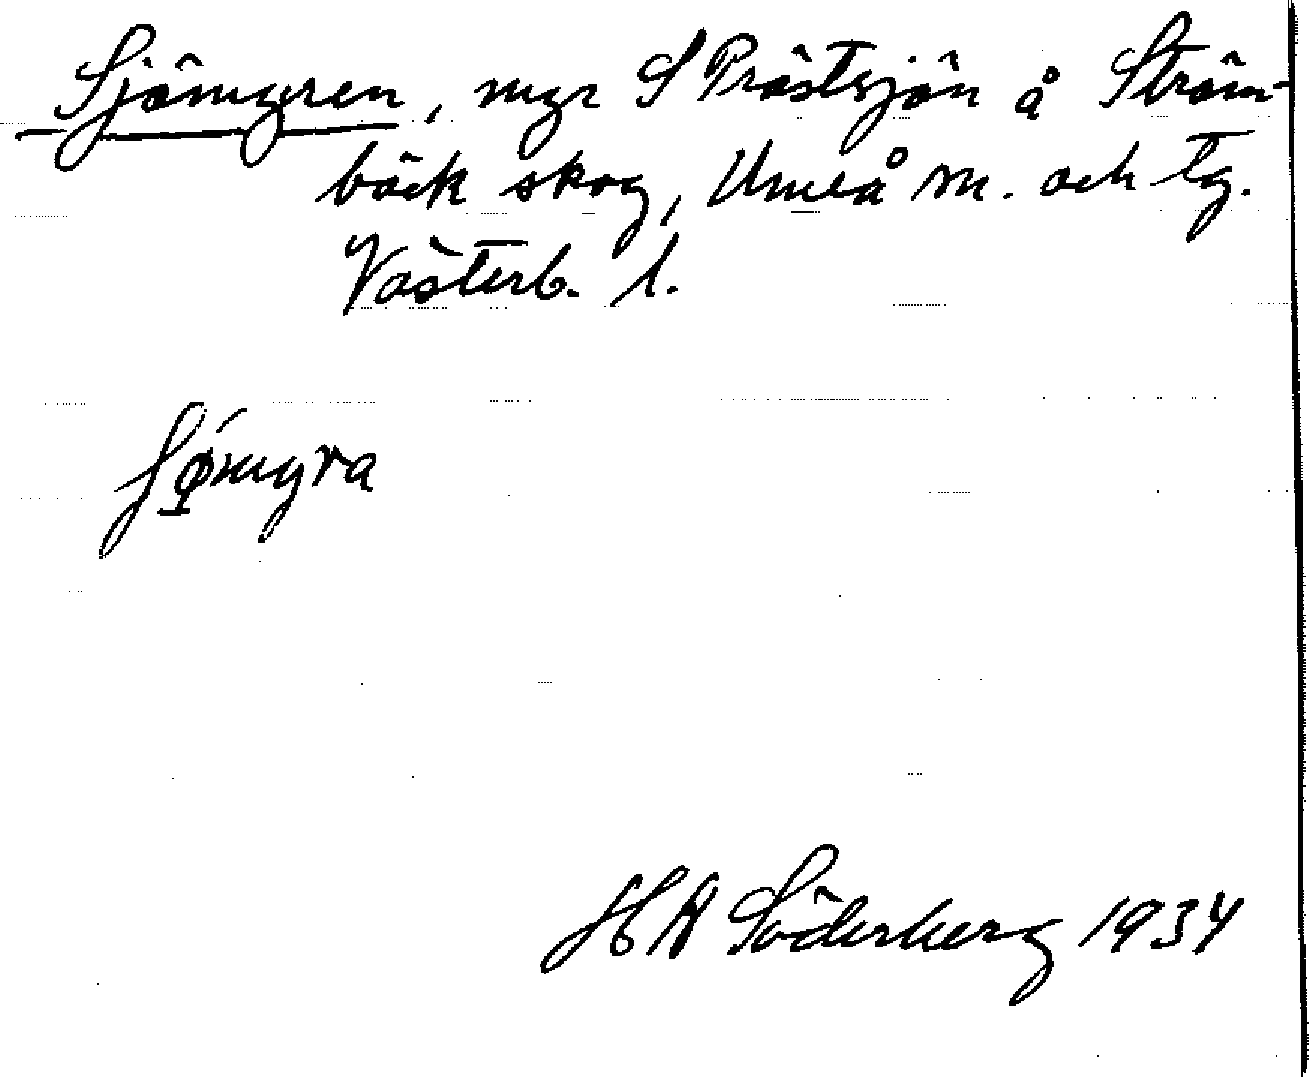 Sjömyren, myr S Prästsjön å Ström-
bäck skog, Umeå sn. och tg.
Västerb. l.
H A Söderberg 1934